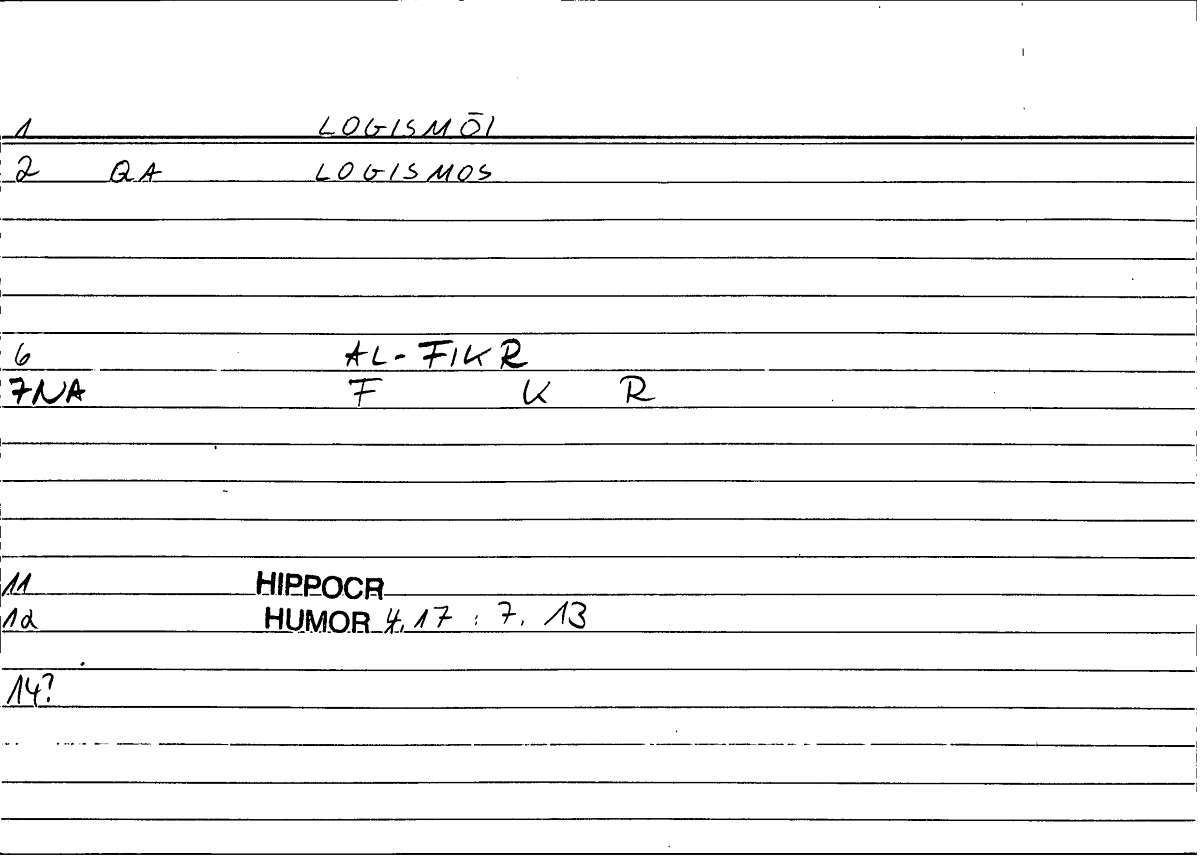 1 LOGISMŌI
2 QA LOGISMOS
6 AL-FIKR
7NA F K R
11 HIPPOCR
12 HUMOR 4,17 : 7. 13
14?